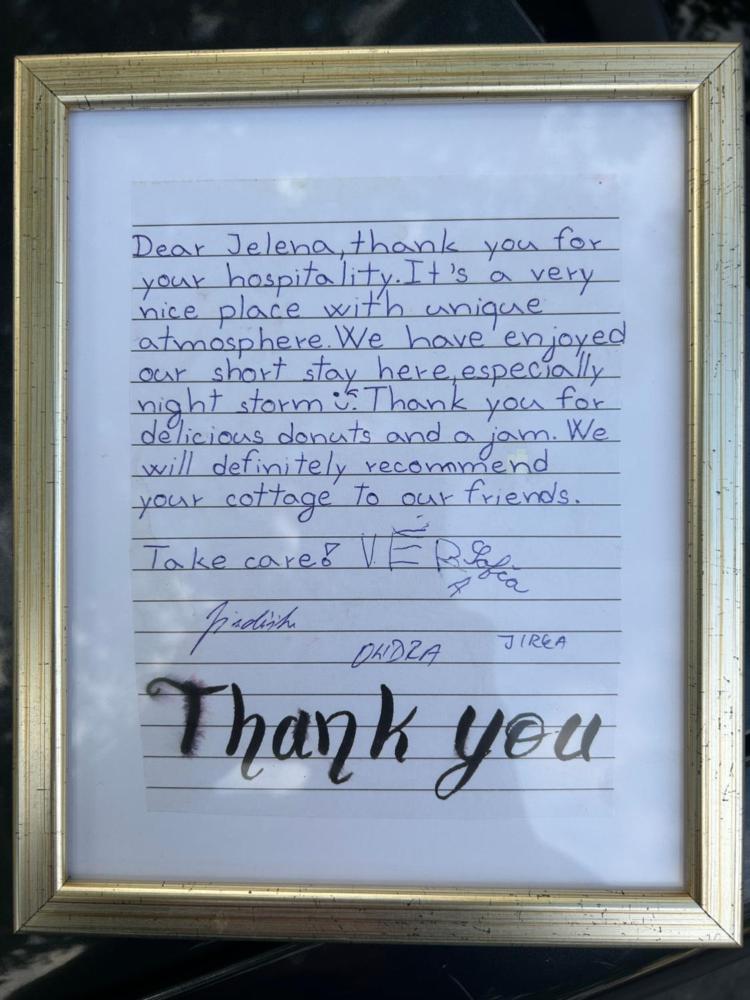 Dear Jelena, thank you for
your hospitality. It's a very
nice place with unique
atmosphere. We have enjoyed
our short stay here, especially
night storm :). Thank you for
delicious donuts and a jam. We
will definitely recommend
your cottage to our friends.
Take care!
JIRKA
Thank you